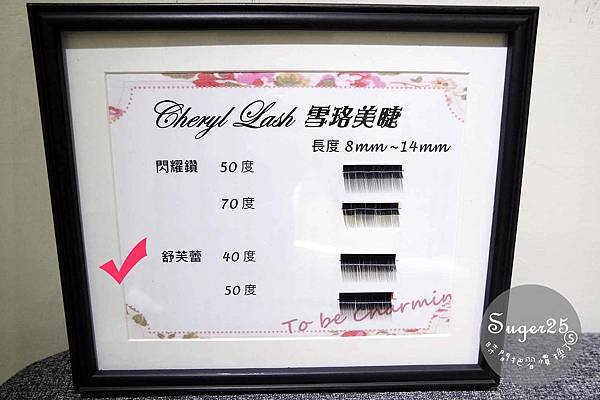 Cheryl Lash 雪珞美睫
長度 8mm~14mm
閃耀鑽 50 度
70 度
舒芙蕾 40 度
50 度
To be Charmin
Suger25